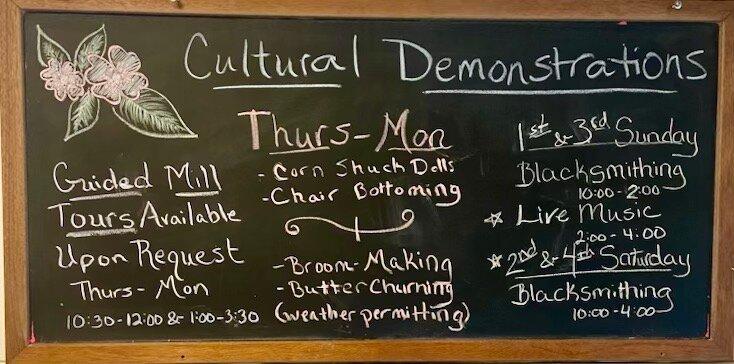 Cultural Demonstrations
Guided Mill
Tours Available
Upon Request
Thurs - Mon
10:30-12:00 & 1:00-3:30
Thurs-Mon
- Corn Shuck Dolls
- Chair Bottoming
- Broom-Making
- Butter Churning
(weather permitting)
1st & 3rd Sunday
Blacksmithing
10:00 - 2:00
☆ Live Music
2:00 - 4:00
☆ 2nd & 4th Saturday
Blacksmithing
10:00 - 4:00